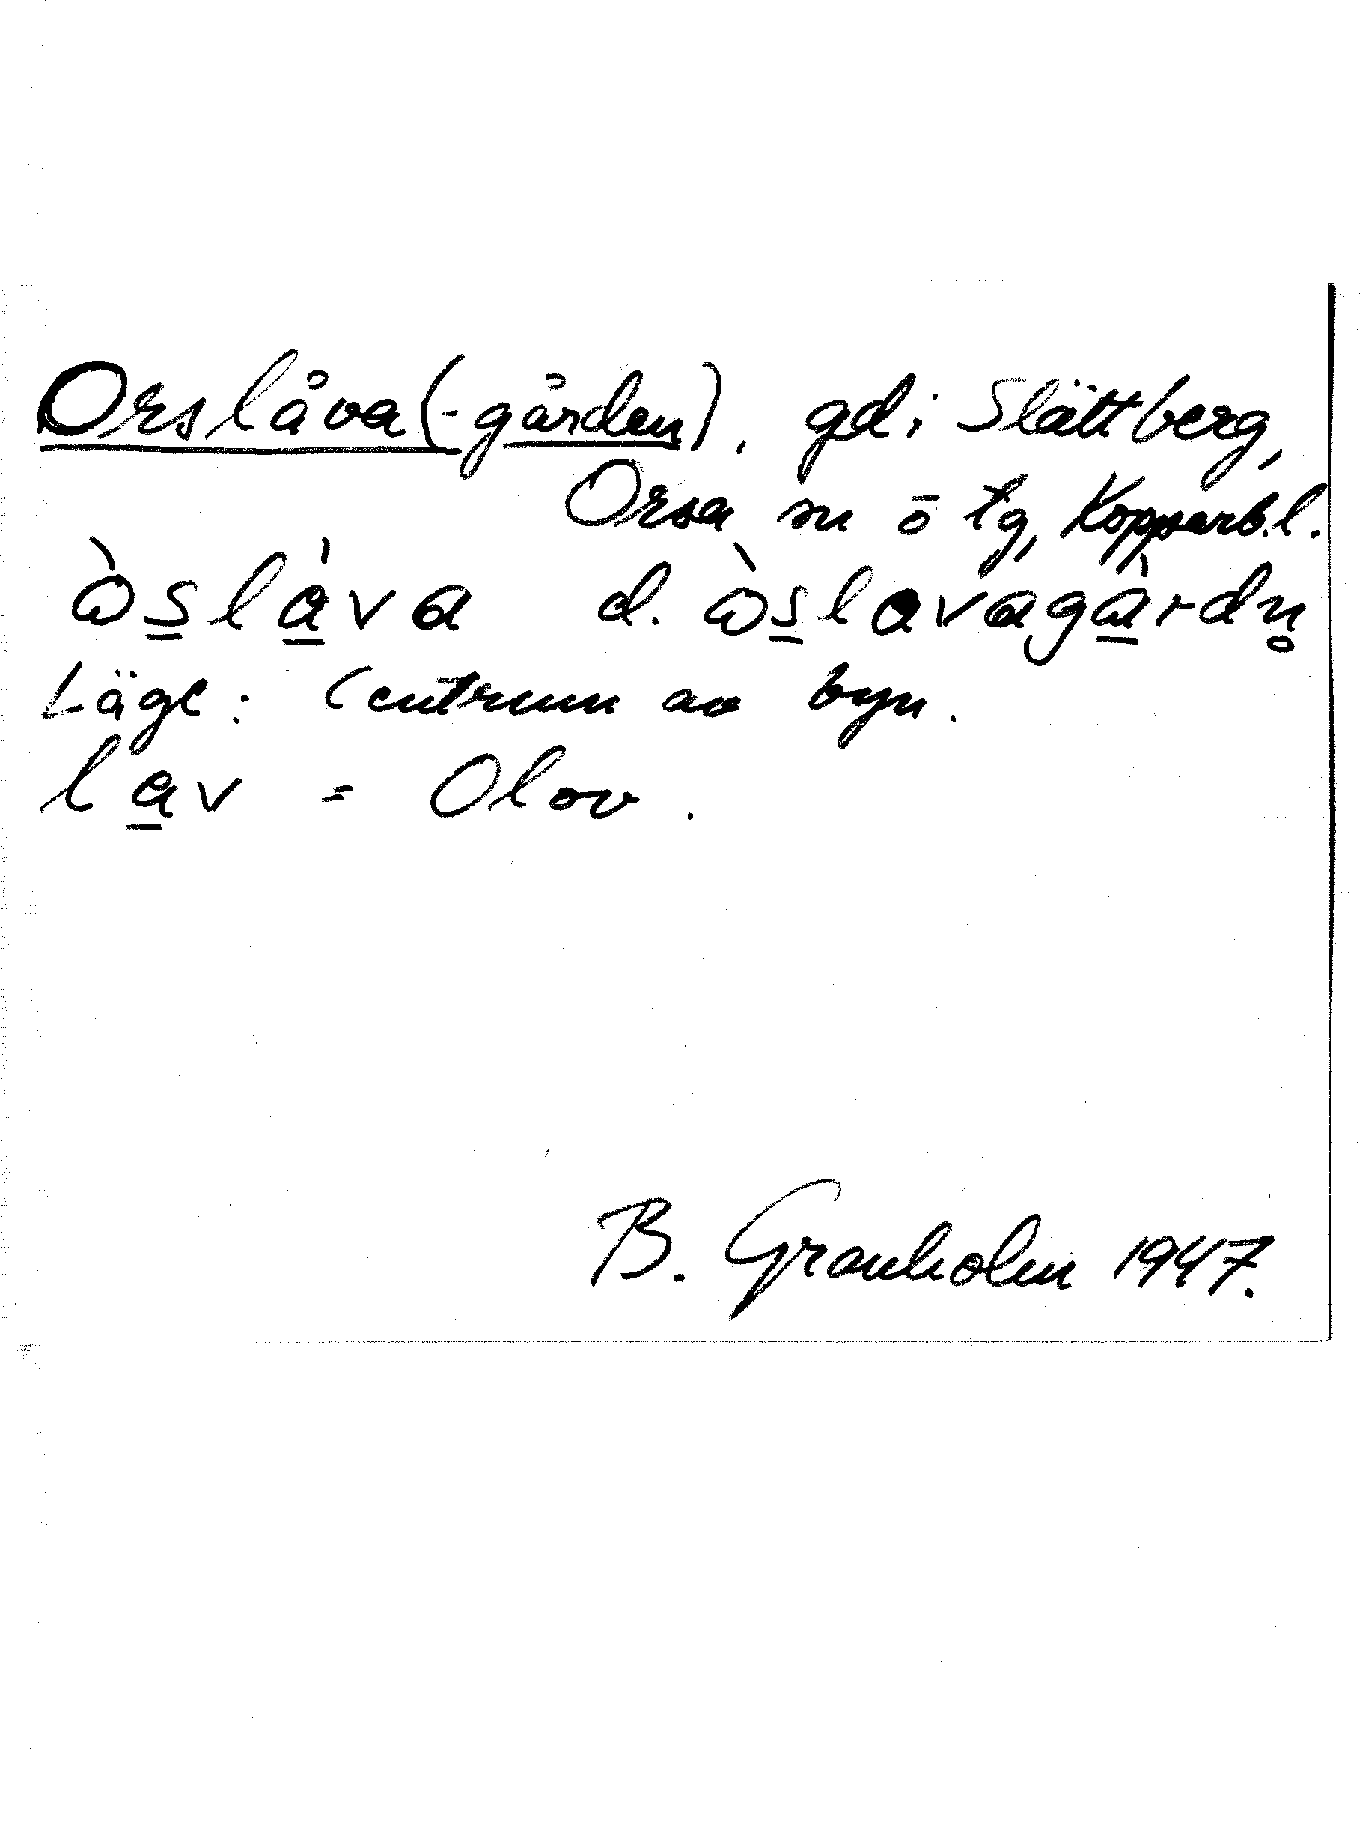 Orslåva (-gården). gd i Slättberg,
Orsa sn ō tg, Kopparb.l.
ὼs̲lá̲va d. ὼs̲lavagὰ̲rdn̥
Läge: Centrum av byn.
la̲v = Olov.
B. Granholm 1947.